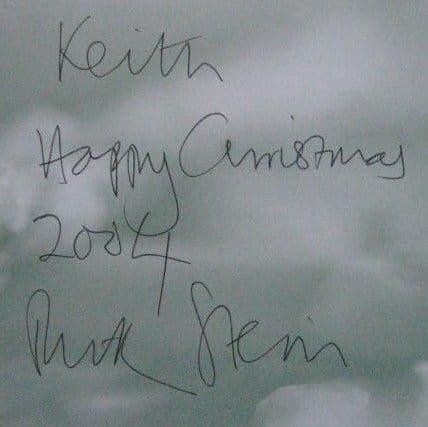 Keith
Happy Christmas
2004
Rick Stein